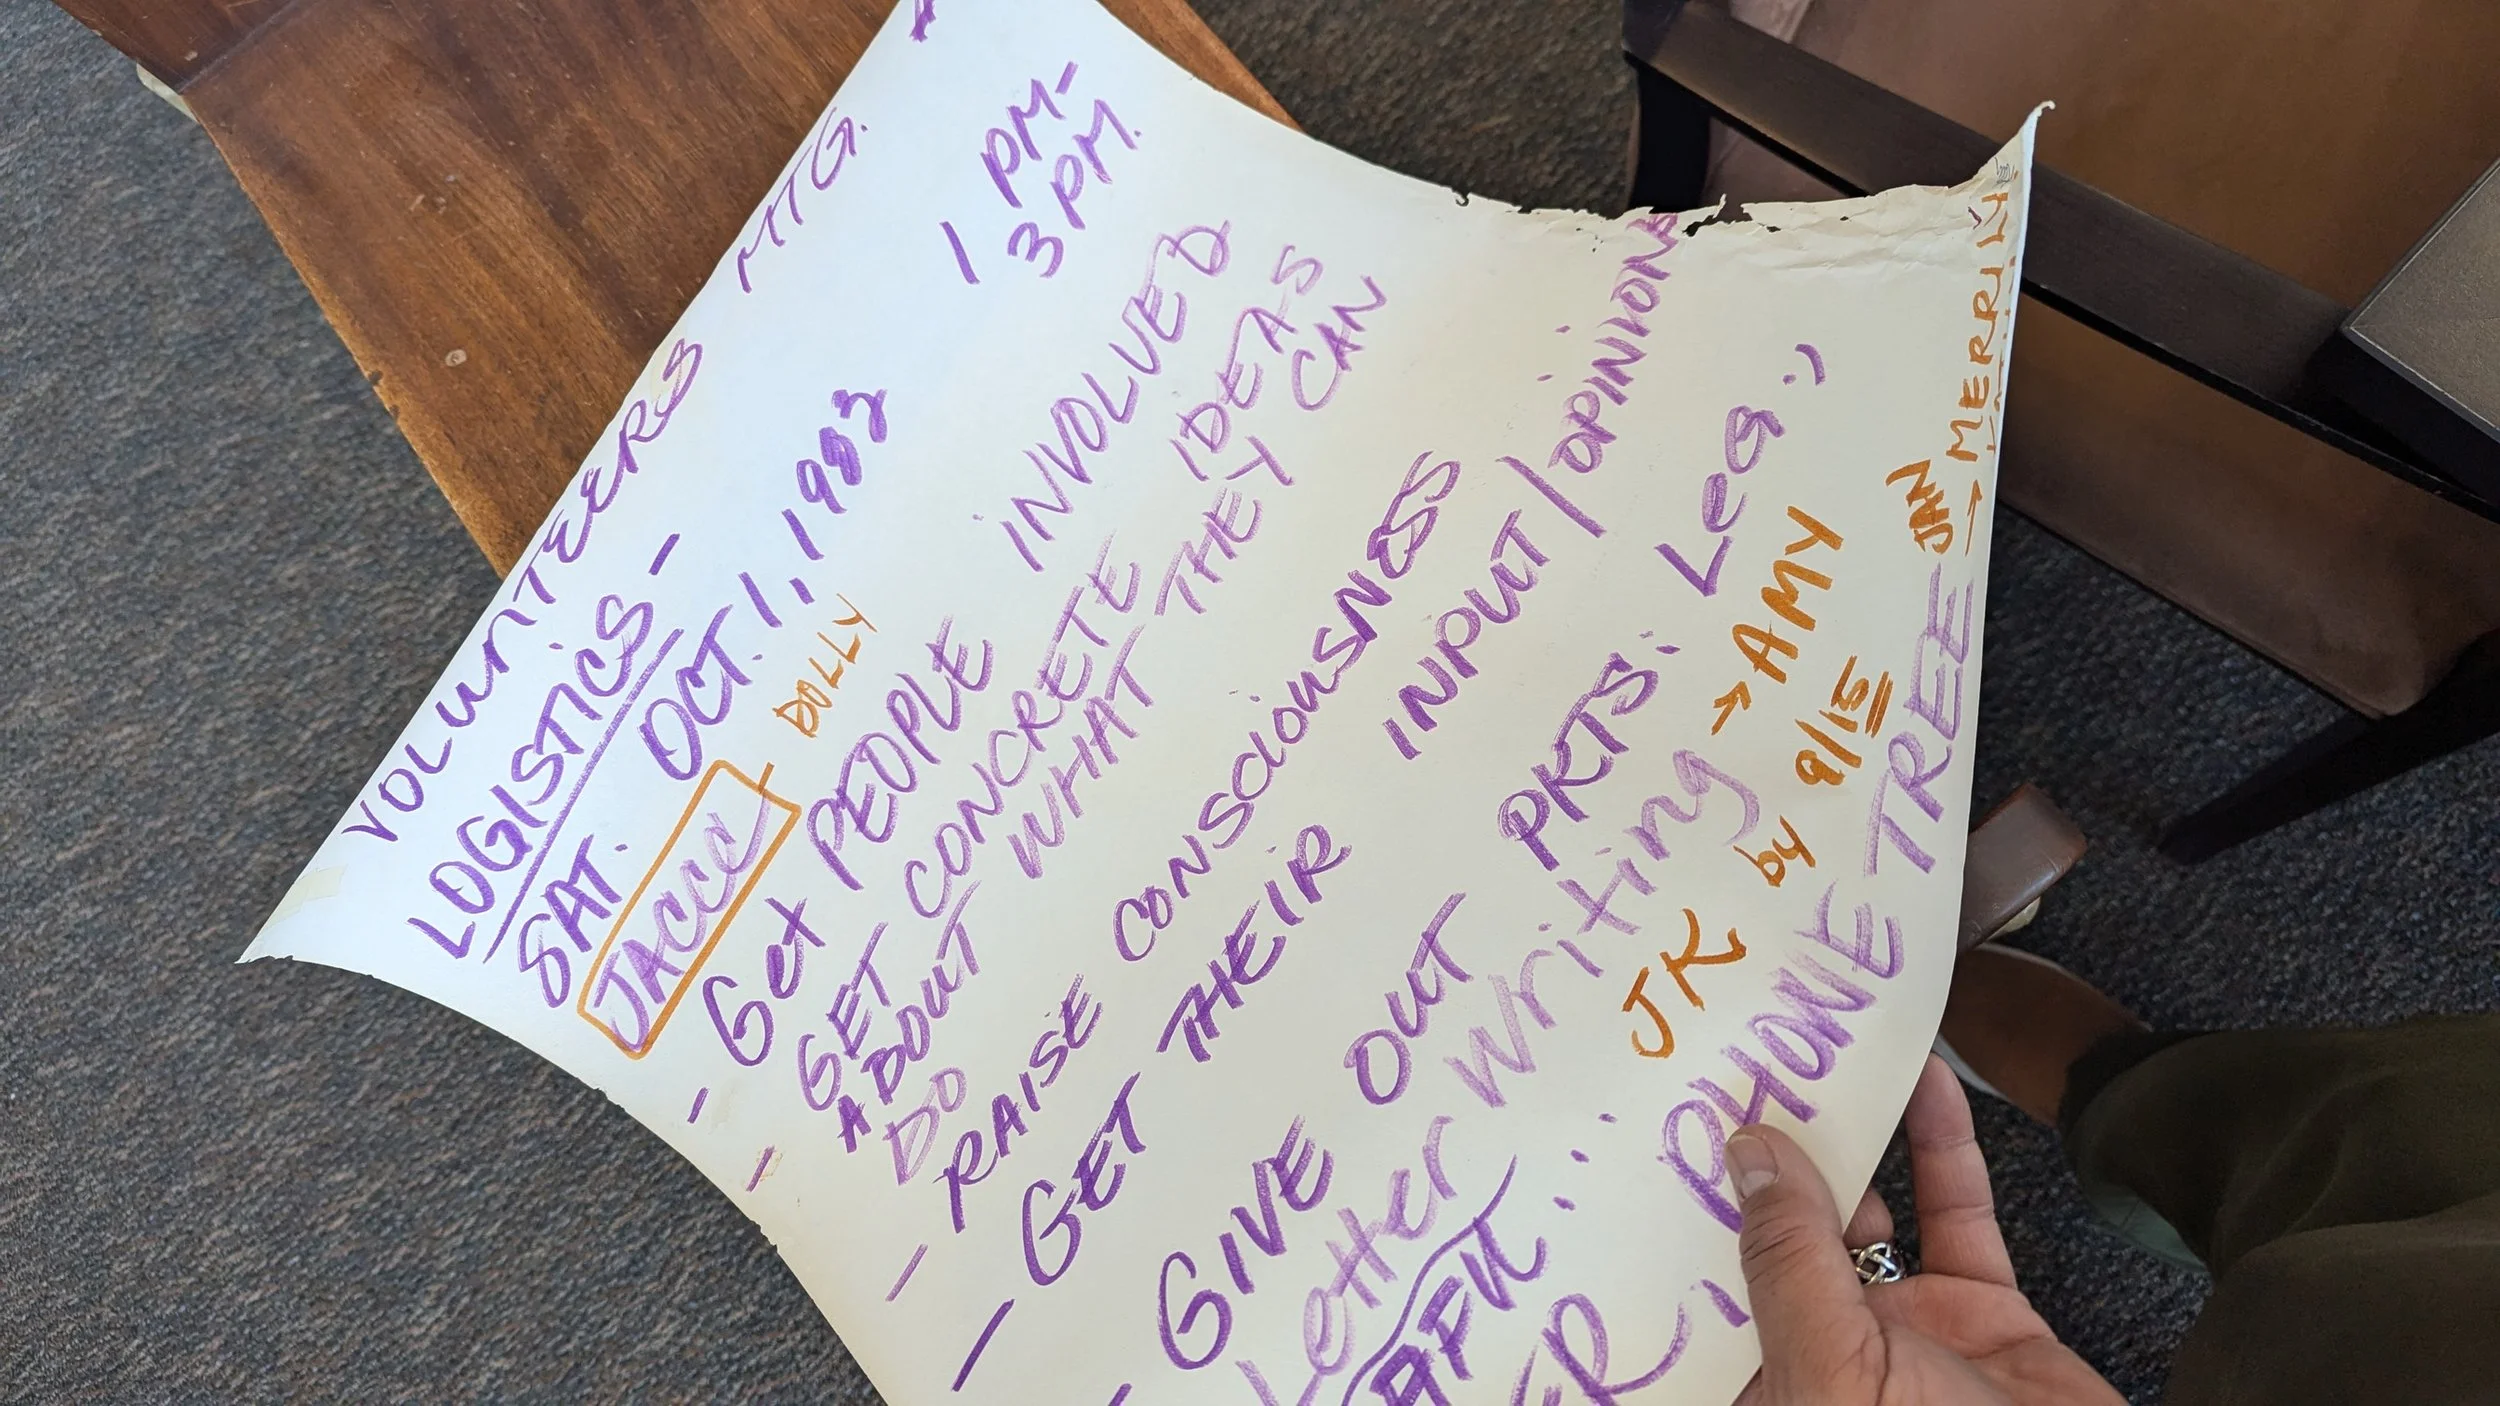 VOLUNTEERS MTG.
LOGISTICS -
SAT. OCT. 1, 1983 1 PM-
3 PM.
JACCC DOLLY
- Get PEOPLE INVOLVED
- GET CONCRETE IDEAS
ABOUT WHAT THEY CAN
DO
- RAISE CONSCIOUSNESS
- GET THEIR INPUT/OPINIONS
- GIVE OUT PKTS: Leg.;
Letter Writing → AMY
JK by 9/15
PHONE TREE JAN
→ MERRILY